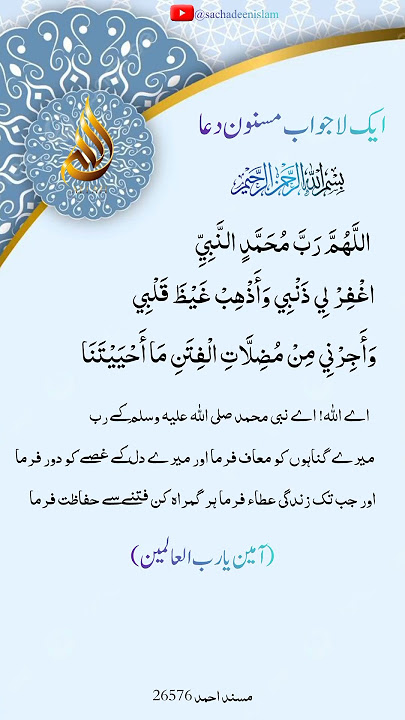 @sachadeenislam
ایک لاجواب مسنون دعا
الله
بِسْمِ اللهِ الرَّحْمٰنِ الرَّحِيْمِ
اللَّهُمَّ رَبَّ مُحَمَّدٍ النَّبِيِّ
اغْفِرْ لِي ذَنْبِي وَأَذْهِبْ غَيْظَ قَلْبِي
وَأَجِرْنِي مِنْ مُضِلَّاتِ الْفِتَنِ مَا أَحْيَيْتَنَا
اے اللہ! اے نبی محمد صلی اللہ علیہ وسلم کے رب
میرے گناہوں کو معاف فرما اور میرے دل کے غصے کو دور فرما
اور جب تک زندگی عطاء فرما ہر گمراہ کن فتنے سے حفاظت فرما
(آمین یارب العالمین)
مسند احمد 26576